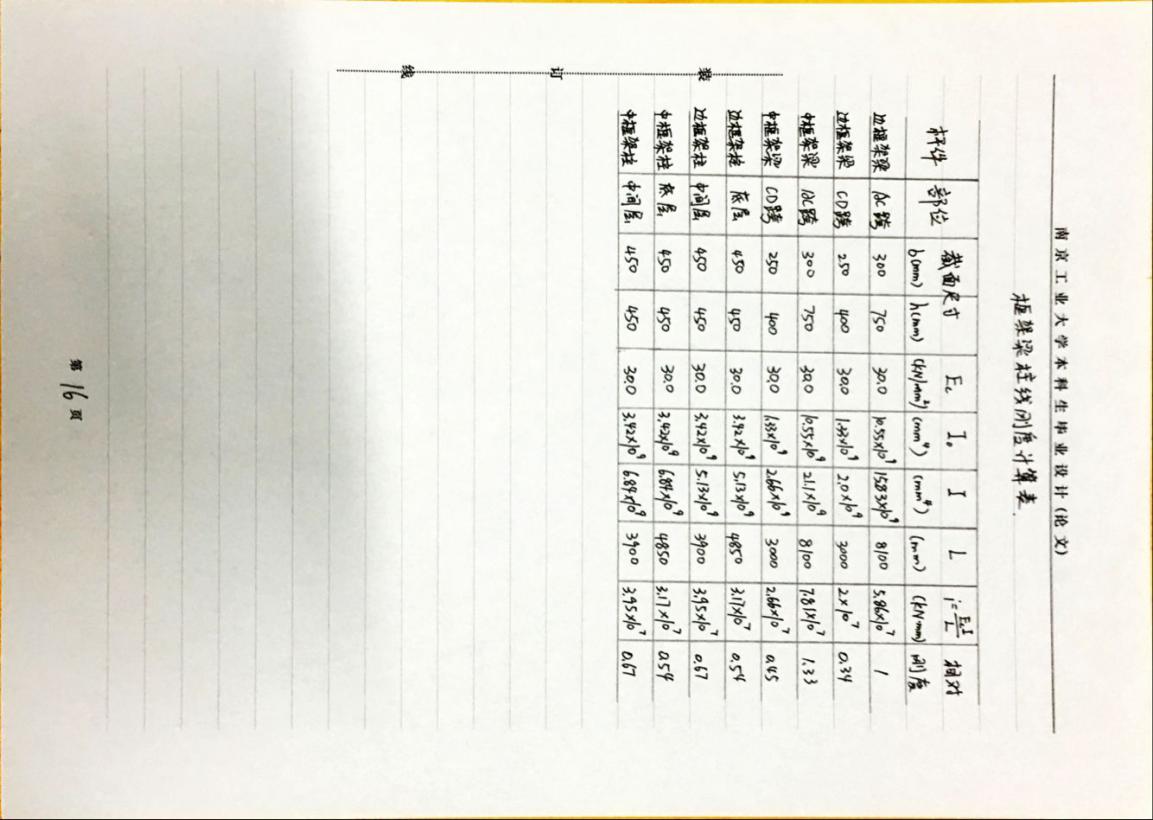 南京工业大学本科生毕业设计(论文)
框架梁柱线刚度计算表
杆件 部位 截面尺寸 Ec I₀ I L i=EcI/L 相对
b(mm) h(mm) (kN/mm²) (mm⁴) (mm⁴) (mm) (kN·mm) 刚度
边框架梁 AC跨 300 750 30.0 10.55×10⁹ 15.83×10⁹ 8100 5.86×10⁷ 1
边框架梁 CD跨 250 400 30.0 1.33×10⁹ 2.0×10⁹ 3000 2×10⁷ 0.34
中框架梁 AC跨 300 750 30.0 10.55×10⁹ 21.1×10⁹ 8100 7.81×10⁷ 1.33
中框架梁 CD跨 250 400 30.0 1.33×10⁹ 2.66×10⁹ 3000 2.66×10⁷ 0.45
边框架柱 底层 450 450 30.0 3.42×10⁹ 5.13×10⁹ 4850 3.17×10⁷ 0.54
边框架柱 中间层 450 450 30.0 3.42×10⁹ 5.13×10⁹ 3900 3.95×10⁷ 0.67
中框架柱 底层 450 450 30.0 3.42×10⁹ 6.84×10⁹ 4850 3.17×10⁷ 0.54
中框架柱 中间层 450 450 30.0 3.42×10⁹ 6.84×10⁹ 3900 3.95×10⁷ 0.67
装
订
线
第 16 页